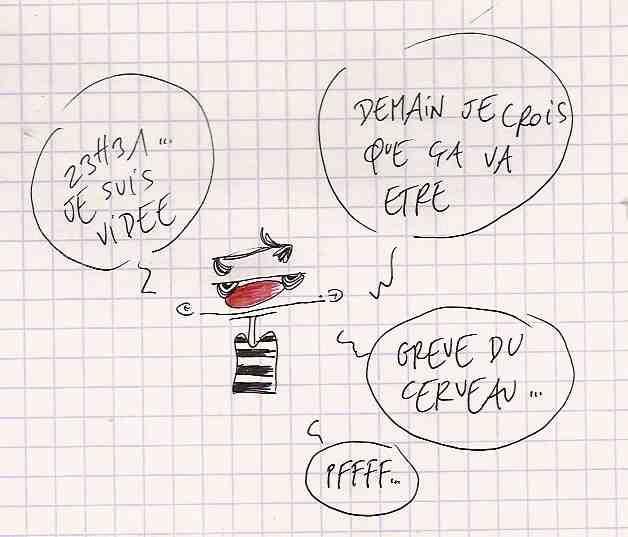 23H31...
JE SUIS
VIDEE
DEMAIN JE CROIS
QUE ÇA VA
ETRE
GREVE DU
CERVEAU...
PFFFF...